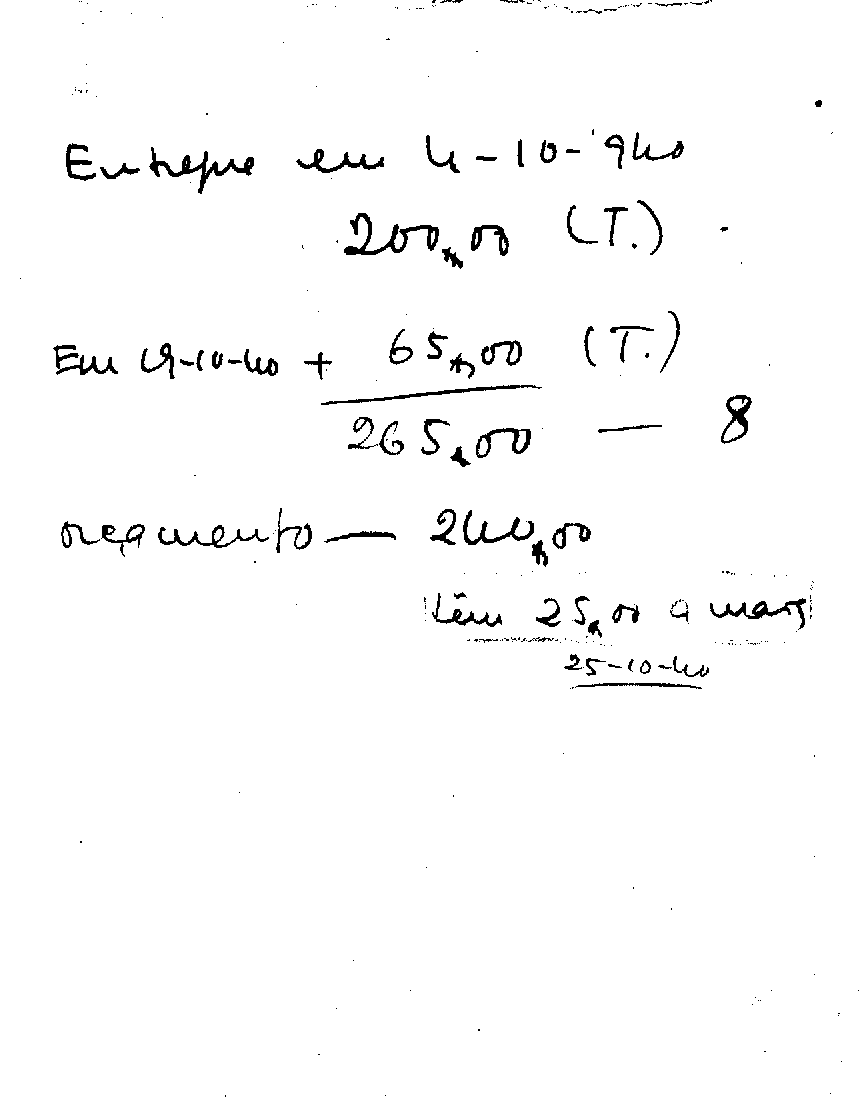 Entregue em 4-10-940
200,00 (T.)
Em 19-10-40 + 65,00 (T.)
265,00 — 8
orçamento — 240,00
têm 25,00 a mais
25-10-40